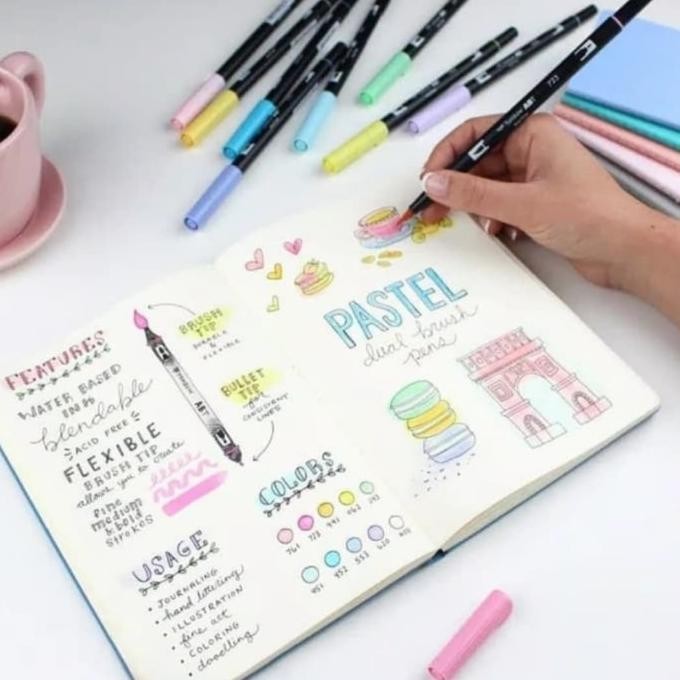 FEATURES
WATER BASED
INK
blendable
ACID FREE
FLEXIBLE
BRUSH TIP
allows you to create
fine
medium
& bold
strokes
USAGE
• JOURNALING
• hand lettering
• ILLUSTRATION
• fine art
• COLORING
• doodling
BRUSH
TIP
DURABLE &
FLEXIBLE
BULLET
TIP
for
CONSISTENT
LINES
ABT
COLORS
761 723 991 062 243
451 452 553 620
PASTEL
dual brush
pens
723
ABT